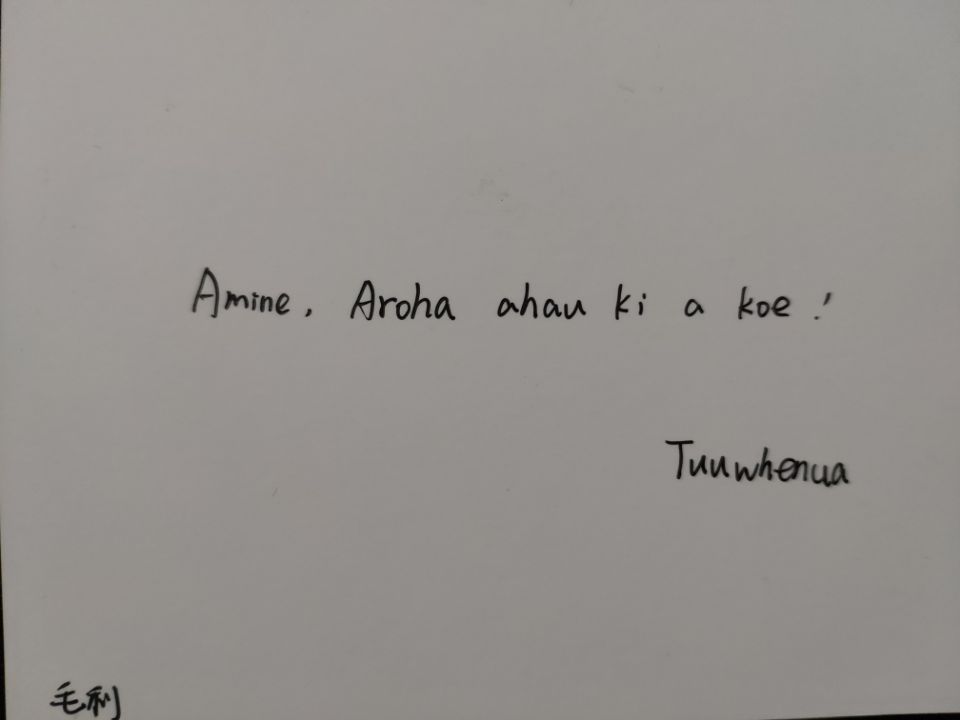 Amine, Aroha ahau ki a koe!
Tuuwhenua
毛利